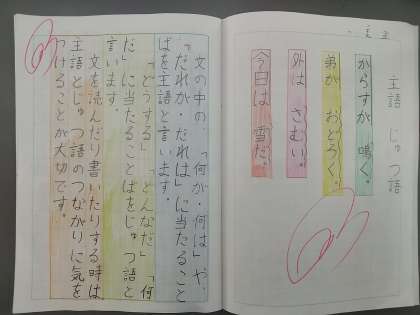 主語 じゅつ語
からすが 鳴く。
弟が おどろく。
外は さむい。
今日は 雪だ。
文の中の、「何が・何は」や、
「だれが・だれは」に当たること
ばを主語と言います。
「どうする」「どんなだ」「何
だ」に当たることばをじゅつ語と
言います。
文を読んだり書いたりする時は
主語とじゅつ語のつながりに気を
つけることが大切です。